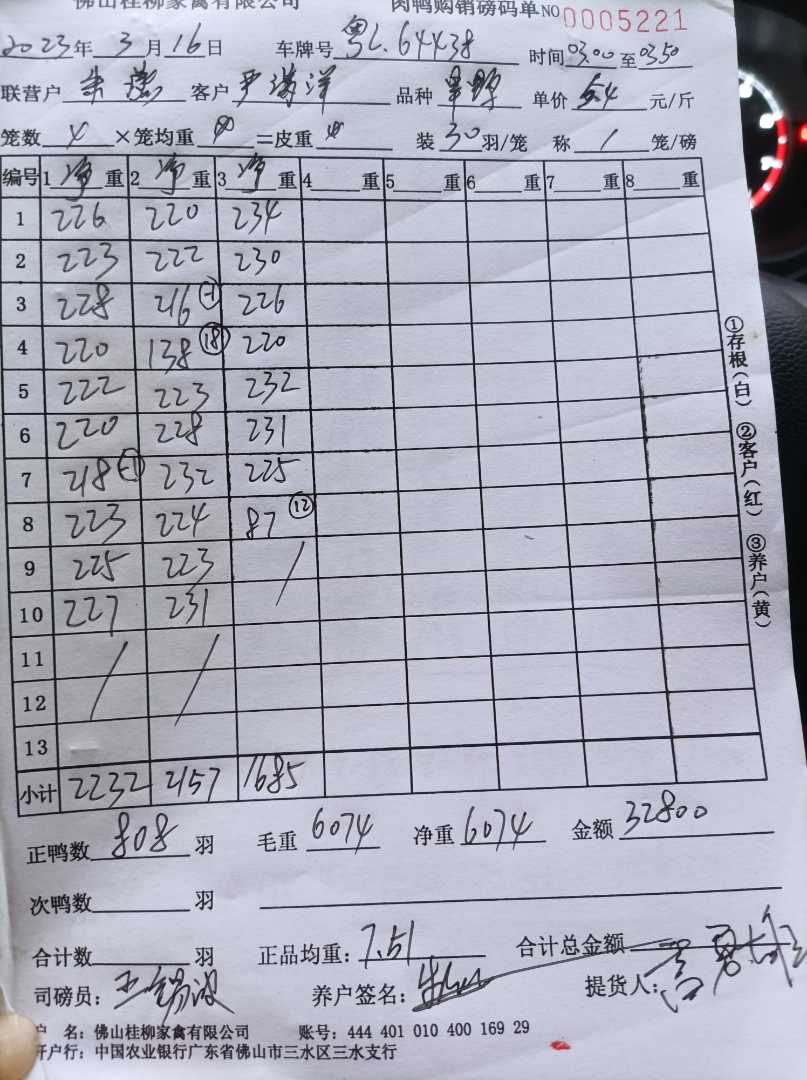 佛山桂柳家禽有限公司 肉鸭购销磅码单 NO 0005221
2023年 3月16日 车牌号 粤L.64438 时间03.00至03.50
联营户 客户 品种 单价 5.4 元/斤
笼数 ×笼均重 =皮重 装30羽/笼 称 1 笼/磅
编号 1 净 重 2 净 重 3 净 重 4 重 5 重 6 重 7 重 8 重
1 226 220 234
2 223 222 230
3 228 216 (-1) 226
4 220 138 (18) 220
5 222 223 232
6 220 228 231
7 218 (-1) 232 225
8 223 224 87 (12)
9 225 223 /
10 227 231
11 / /
12
13
小计 2232 2157 1685
正鸭数 808 羽 毛重 6074 净重 6074 金额 32800
次鸭数 羽
合计数 羽 正品均重: 7.51 合计总金额
司磅员: 养户签名: 提货人:
户 名: 佛山桂柳家禽有限公司 账号: 444 401 010 400 169 29
开户行: 中国农业银行广东省佛山市三水区三水支行
①存根(白) ②客户(红) ③养户(黄)